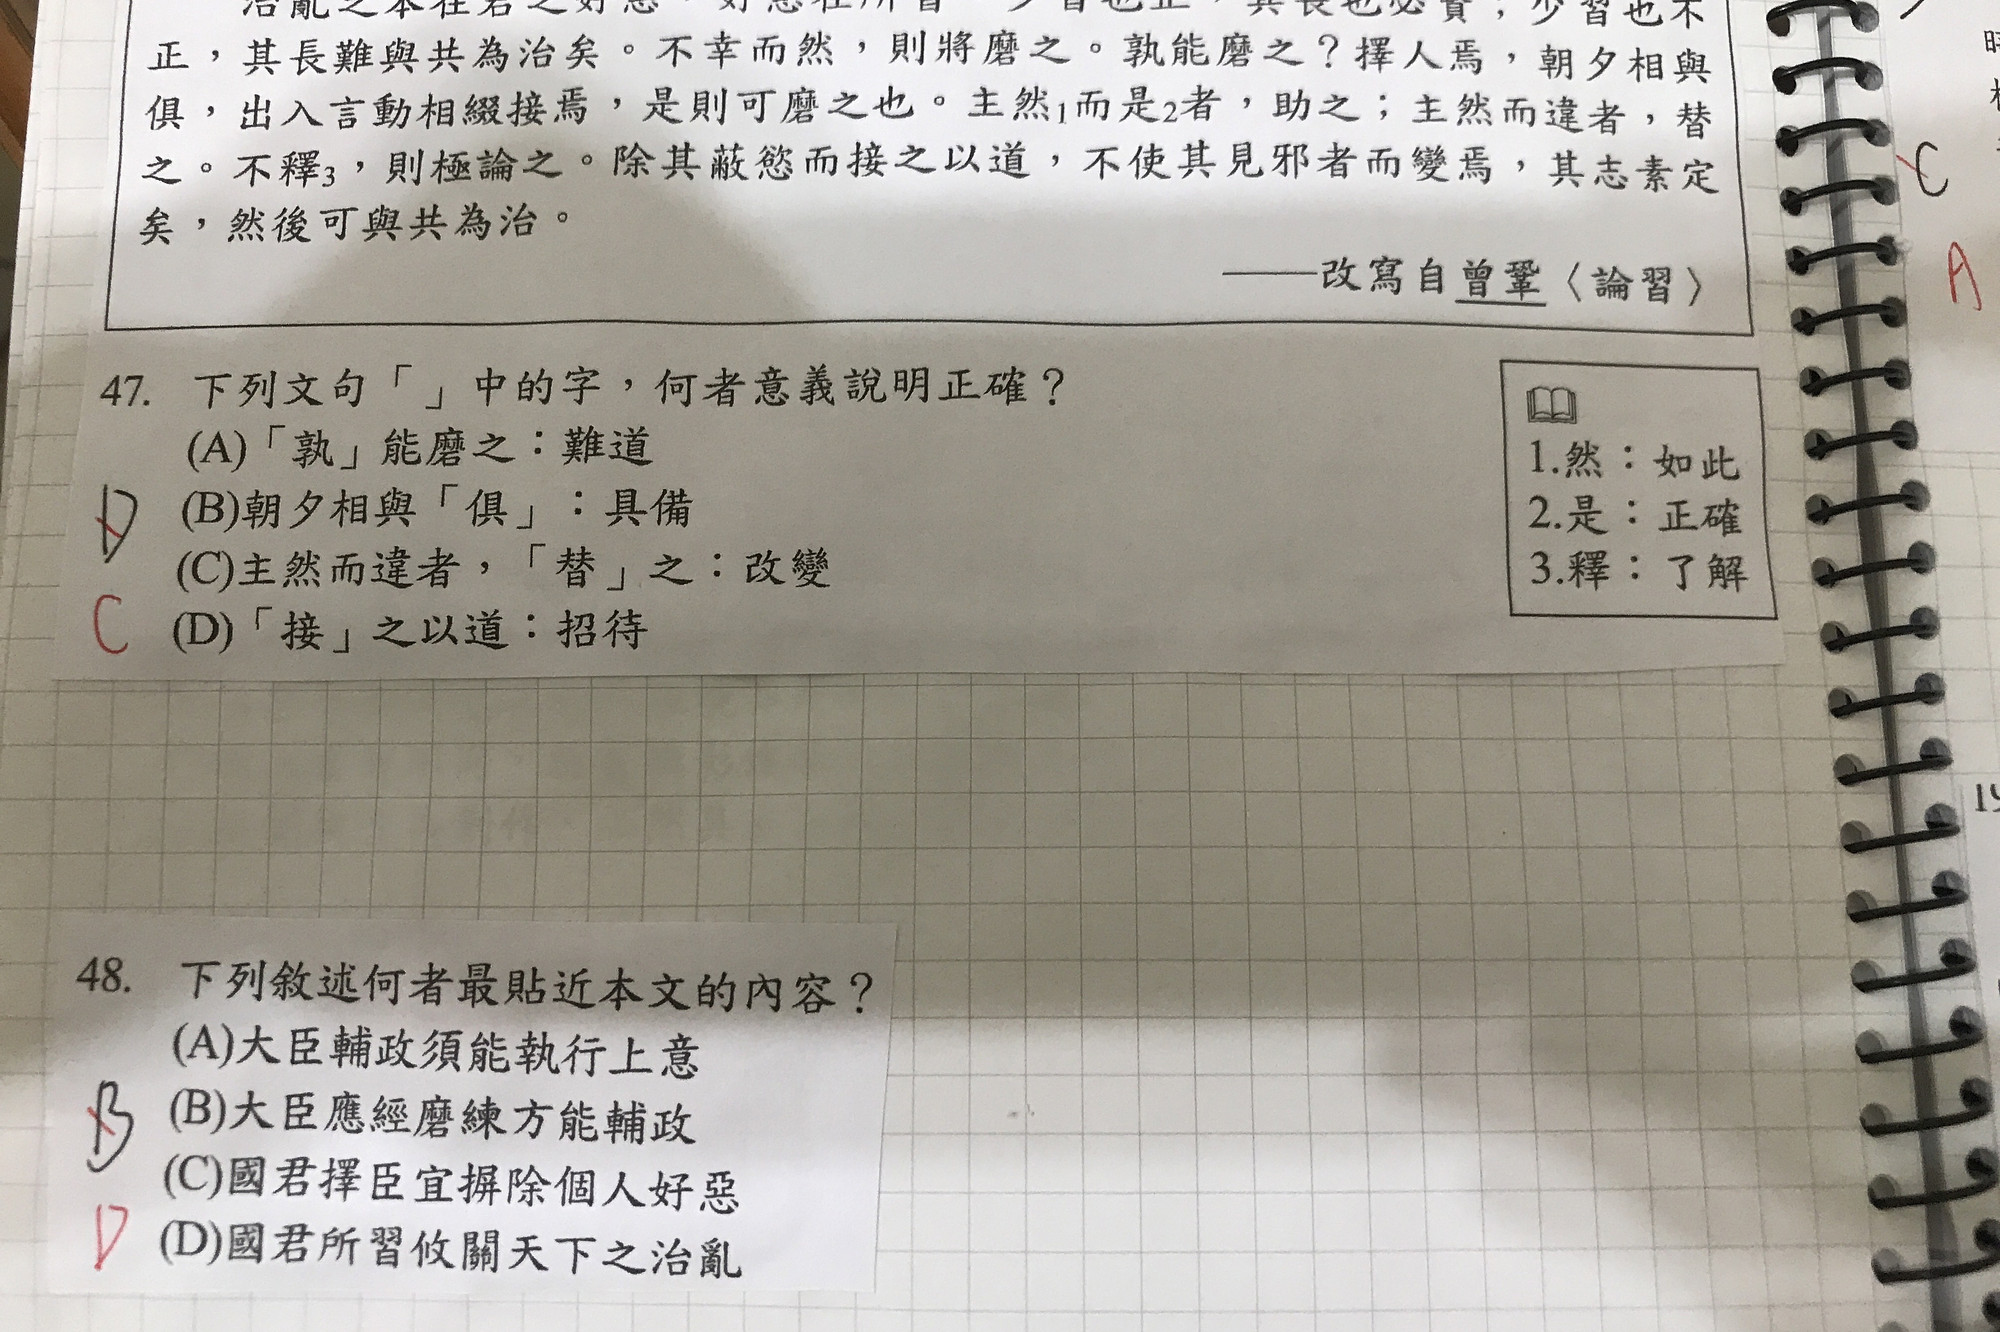 治亂之本在君之好惡，好惡在所習。少習也正，其長也必賢；少習也不
正，其長難與共為治矣。不幸而然，則將磨之。孰能磨之？擇人焉，朝夕相與
俱，出入言動相綴接焉，是則可磨之也。主然1而是2者，助之；主然而違者，替
之。不釋3，則極論之。除其蔽慾而接之以道，不使其見邪者而變焉，其志素定
矣，然後可與共為治。
——改寫自曾鞏〈論習〉
47. 下列文句「 」中的字，何者意義說明正確？
(A)「孰」能磨之：難道
(B)朝夕相與「俱」：具備
(C)主然而違者，「替」之：改變
(D)「接」之以道：招待
D
C
1.然：如此
2.是：正確
3.釋：了解
48. 下列敘述何者最貼近本文的內容？
(A)大臣輔政須能執行上意
(B)大臣應經磨練方能輔政
(C)國君擇臣宜摒除個人好惡
(D)國君所習攸關天下之治亂
B
D
C
A
19